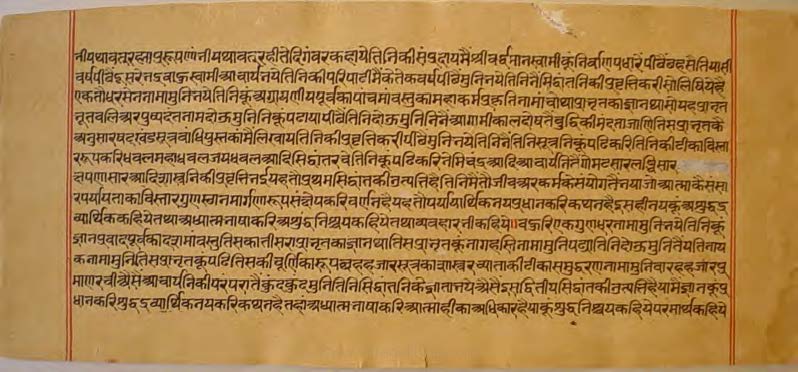 नीयथावत् रहा प्ररूपण नी यथावत् रही ते दिगंवर कहाये तिनिकी संप्रदायमैं श्रीवर्द्धमानस्वामीकूं निर्वाण पधारे पीछै छहसैतियासी
वर्ष पीछै दूसरे भद्रवाहुस्वामी आचार्य नये तिनिकी परिपाटीमैं केतेक वर्ष पीछै मुनि नये तिनिनैं सिद्धांतनिकी प्रवृत्ति करी सो लिखिये है
एक तौ धरसेननामा मुनि नये तिनिकूं अग्रायणीपूर्वका पांचमां वस्तुका महाकर्मप्रकृतिनामां चोथा प्रानृतका ज्ञान था सो यह प्रानृत
नूतवलि अर पुष्पदंतनाम दोऊ मुनिनिकूं पढाया पीछै तिनि दोऊ मुनिनिनैं आगामी कालदोषतैं बुद्धिकी मंदता जाणि तिस प्रानृतकै
अनुसार षट्खंड सूत्र वांधि पुस्तकांमैं लिखाय तिनिकी प्रवृत्ति करी पीछैं मुनि नये तिनिनैं तिनि सूत्रनिकूं पढि करि तिनिकी टीका विस्ता
ररूप करि धवल महाधवल जयधवल आदि सिद्धांत रचे तिनिकूं पढि करि नेमिचंद्र आदि आचार्यनिनैं गोमटसार लब्धिसार
क्षपणासार आदि शास्त्रनिकी प्रवृत्ति करी यह तौ प्रथम सिद्धांतकी उत्पत्ति है तिनिमैं तौ जीव अर कर्मके संयोगतैं नया जो आत्माकै संसा
र पर्याय ताका विस्तार गुणस्थान मार्गणारूप संक्षेप करि वर्णन है यह तौ पर्यायार्थिकनय प्रधान करि कथन है इसही नयकूं अशुद्धद्र
व्यार्थिक कहिये तथा अध्यात्मनाषाकरि अशुद्धनिश्चय कहिये तथा व्यवहार नी कहिये॥ वहुरि एक गुणधरनामा मुनि नये तिनिकूं
ज्ञानप्रवादपूर्वका दशमां वस्तु तिसका तीसरा प्रानृतका ज्ञान था तिस प्रानृतकूं नागहस्तिनामा मुनि पढ्या तिनि दोऊ मुनिनैं यतिनाय
कनामा मुनि तिस प्रानृतकूं पढि तिसकी चूर्णिकारूप छहहजार सूत्र का शास्त्र रच्या ताकी टीका समुद्धरणनामा मुनि वारहहजार प्र
माण रची अैसैं आचार्यनिकी परंपरातैं कुंदकुंदमुनि तिनि सिद्धांतनिके ज्ञाता नये अैसे इस द्वितीय सिद्धांतकी उत्पत्ति है यामैं ज्ञानकूं प्र
धान करि शुद्धद्रव्यार्थिकनय करि कथन है तहां अध्यात्मनाषाकरि आत्माहीका अधिकार है याकूं शुद्धनिश्चय कहिये परमार्थ कहिये